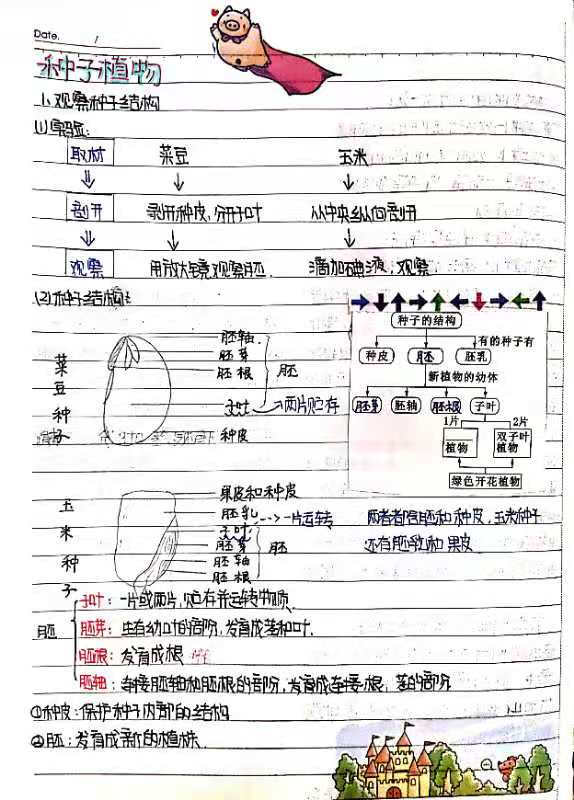 Date. /
种子植物
1、观察种子结构
(1)实验:
取材 菜豆 玉米
剖开 剥开种皮,分开子叶 从中央纵向剖开
观察 用放大镜观察胚. 滴加碘液,观察.
(2)种子结构:
菜豆种子
胚轴
胚芽
胚根
胚
子叶→两片贮存
种皮
种子的结构
有的种子有
种皮 胚 胚乳
新植物的幼体
胚芽 胚轴 胚根 子叶
1片 2片
植物 双子叶植物
绿色开花植物
玉米种子
果皮和种皮
胚乳 --→一片运转
子叶
胚芽
胚轴
胚根
胚
两者都含胚和种皮,玉米种子
还有胚乳和果皮
胚
子叶:一片或两片,贮存并运转物质.
胚芽:生有幼叶的部分,发育成茎和叶.
胚根:发育成根
胚轴:连接胚轴和胚根的部分,发育成连接根,茎的部分
①种皮:保护种子内部的结构
②胚:发育成新的植株.